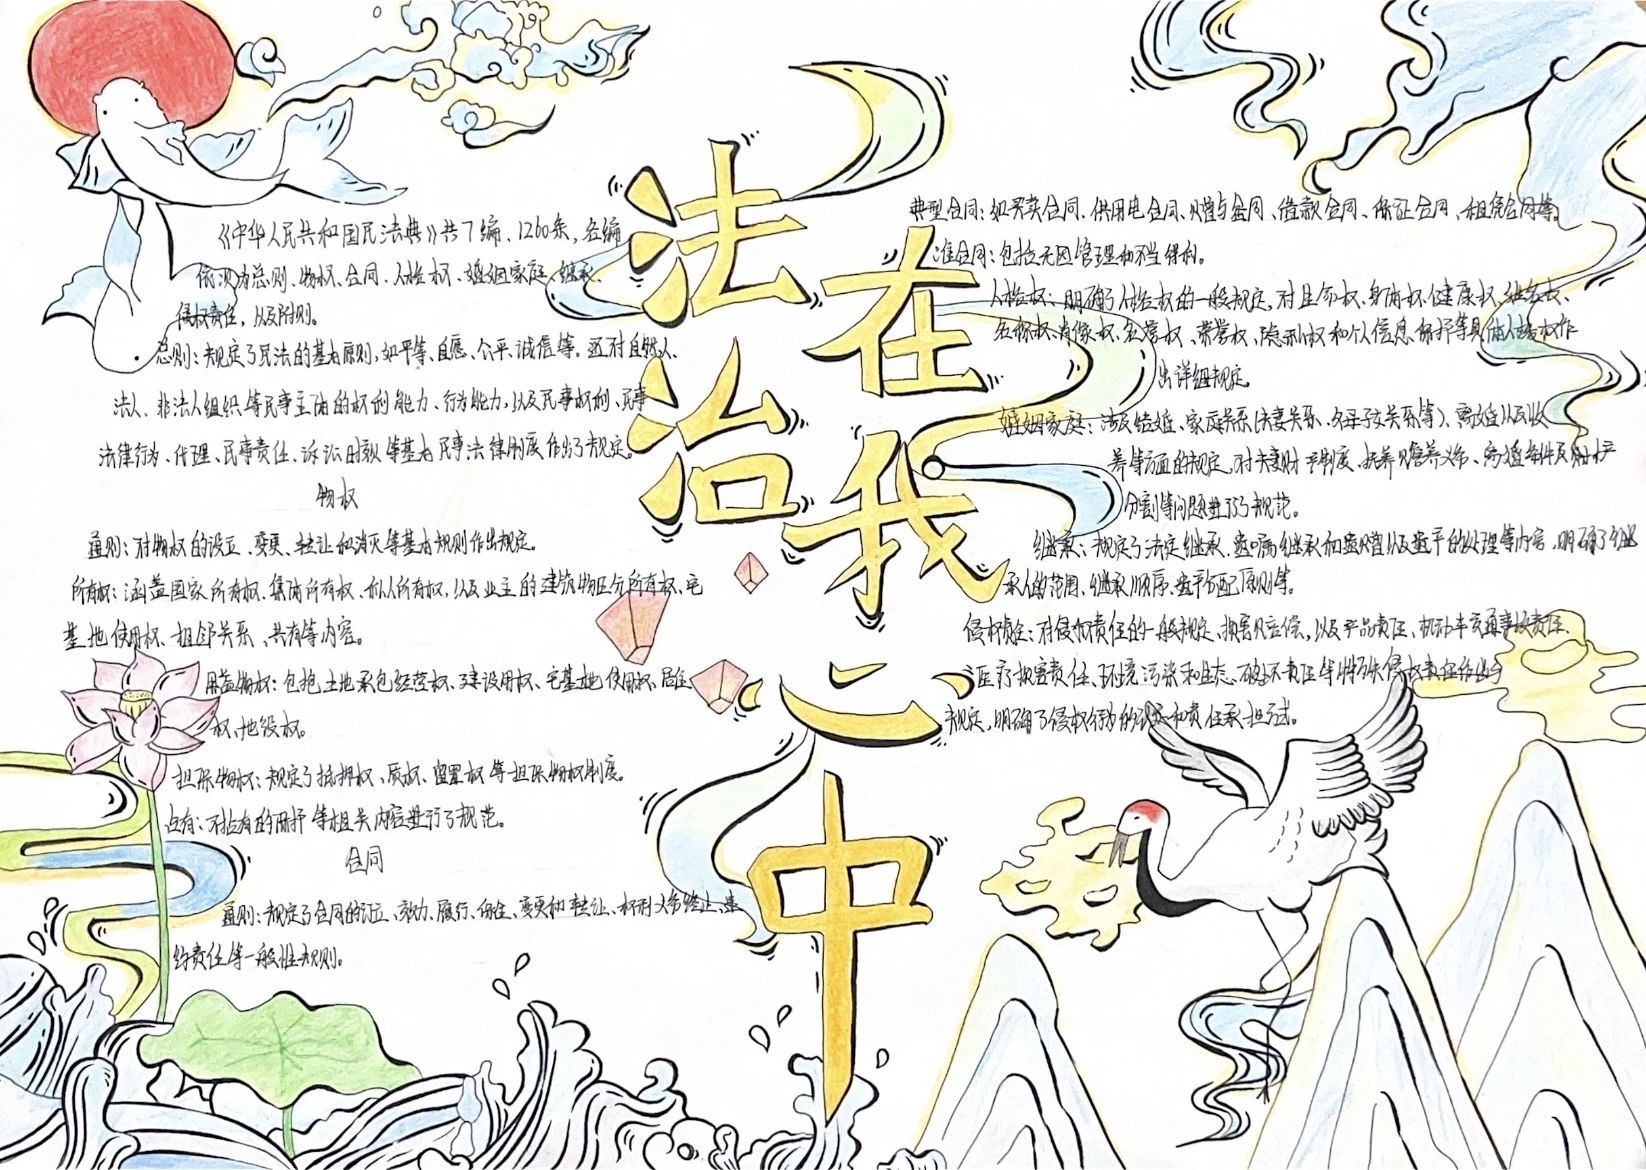 法治
在我心中
《中华人民共和国民法典》共7编、1260条,各编
依次为总则、物权、合同、人格权、婚姻家庭、继承、
侵权责任,以及附则。
总则:规定了民法的基本原则,如平等、自愿、公平、诚信等。还对自然人、
法人、非法人组织等民事主体的权利能力、行为能力,以及民事权利、民事
法律行为、代理、民事责任、诉讼时效等基本民事法律制度作出了规定。
物权
通则:对物权的设立、变更、转让和消灭等基本规则作出规定。
所有权:涵盖国家所有权、集体所有权、私人所有权,以及业主的建筑物区分所有权、宅
基地使用权、相邻关系、共有等内容。
用益物权:包括土地承包经营权、建设用权、宅基地使用权、居住
权、地役权。
担保物权:规定了抵押权、质权、留置权等担保物权制度。
占有:对占有的保护等相关内容进行了规范。
合同
通则:规定了合同的订立、效力、履行、保全、变更和转让、权利义务终止、违
约责任等一般性规则。
典型合同:如买卖合同、供用电合同、赠与合同、借款合同、保证合同、租赁合同等。
准合同:包括无因管理和不当得利。
人格权:明确了人格权的一般规定,对生命权、身体权、健康权、姓名权、
名称权、肖像权、名誉权、荣誉权、隐私权和个人信息保护等具体人格权作
出详细规定
婚姻家庭:涉及结婚、家庭关系(夫妻关系、父母子女关系等)、离婚以及收
养等方面的规定,对夫妻财产制度、抚养赡养义务、离婚条件及财产
分割等问题进行了规范。
继承:规定了法定继承、遗嘱继承和遗赠以及遗产的处理等内容,明确了继
承人的范围、继承顺序、遗产分配原则等。
侵权责任:对侵权责任的一般规定、损害赔偿,以及产品责任、机动车交通事故责任、
医疗损害责任、环境污染和生态破坏责任等特殊侵权责任作出了
规定,明确了侵权行为的认定和责任承担方式。